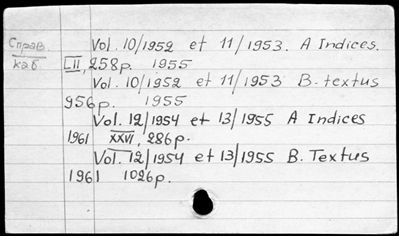 Справ.
каб.
Vol. 10/1952 et 11/1953. A Indices.
LII, 258p. 1955
Vol. 10/1952 et 11/1953 B. textus
956p. 1955
Vol. 12/1954 et 13/1955 A Indices
1961 XXVI, 286p.
Vol. 12/1954 et 13/1955 B. Textus
1961 1026p.